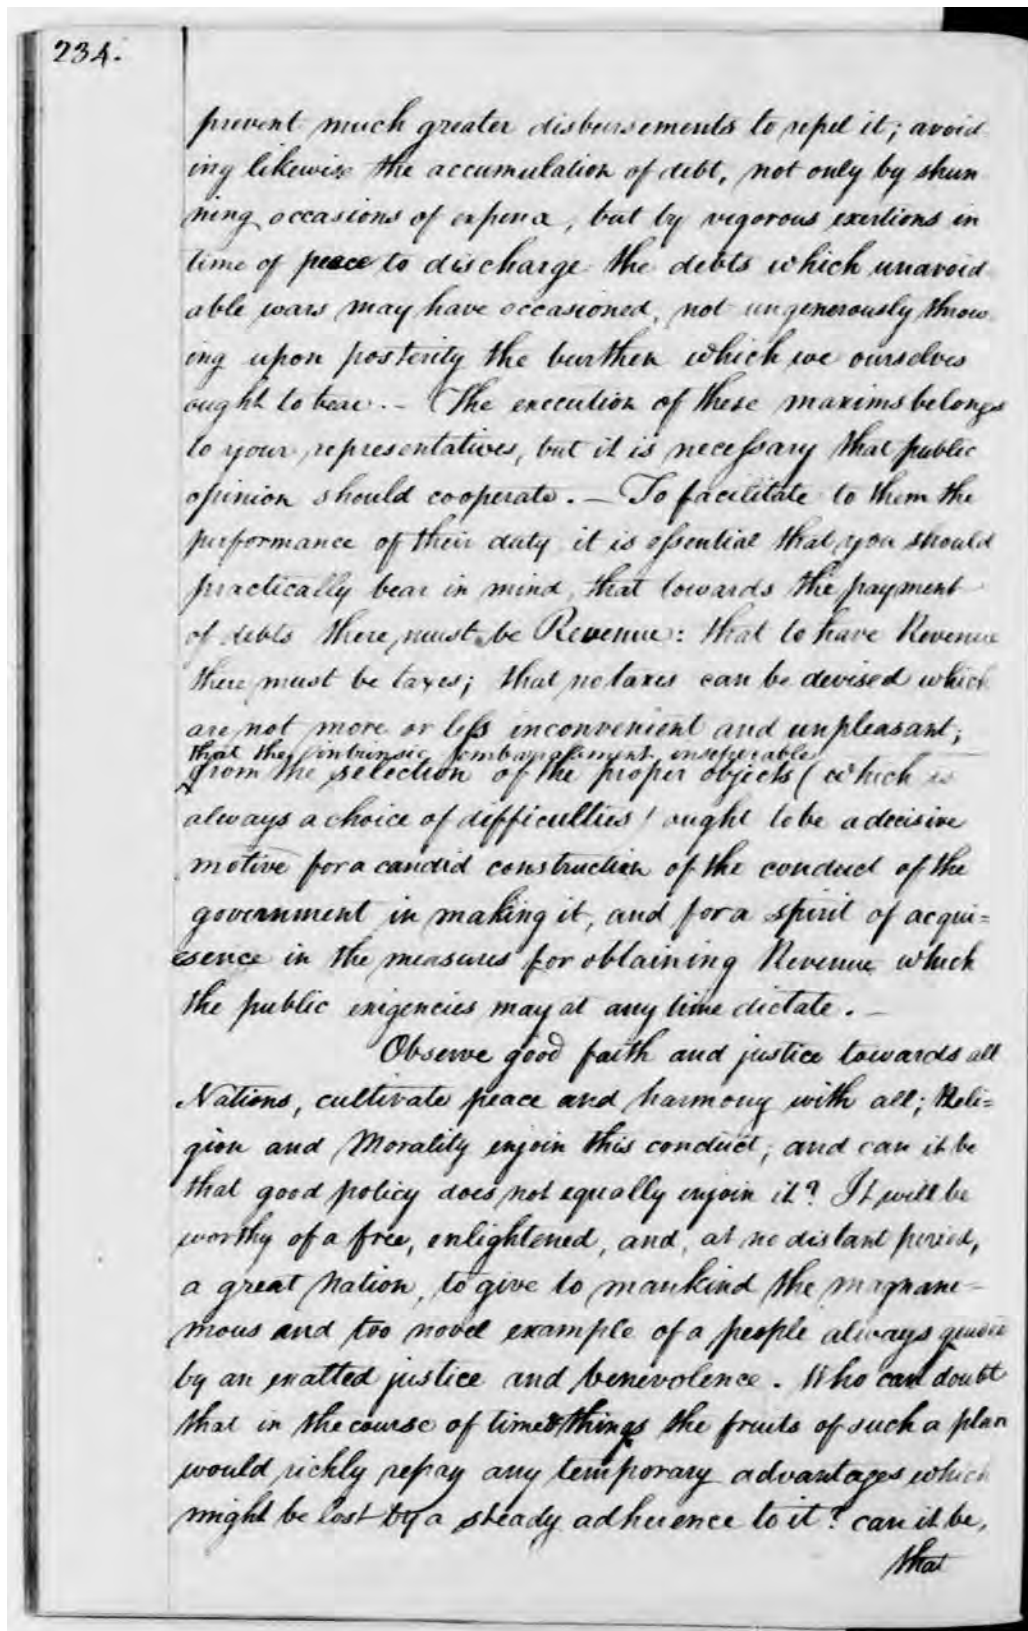 234.
prevent much greater disbursements to repel it; avoid
ing likewise the accumulation of debt, not only by shun
ning occasions of expence, but by vigorous exertions in
time of peace to discharge the debts which unavoid
able wars may have occasioned, not ungenerously throw
ing upon posterity the burthen which we ourselves
ought to bear. – The execution of these maxims belongs
to your representatives, but it is necessary that public
opinion should cooperate. – To facilitate to them the
performance of their duty it is essential that you should
practically bear in mind, that towards the payment
of debts there must be Revenue: that to have Revenue
there must be taxes; that no taxes can be devised which
are not more or less inconvenient and unpleasant;
that the intrinsic embarrassment inseperable
from the selection of the proper objects (which is
always a choice of difficulties) ought to be a decisive
motive for a candid construction of the conduct of the
government in making it, and for a spirit of acqui=
esence in the measures for obtaining Revenue which
the public exigencies may at any time dictate. –
Observe good faith and justice towards all
Nations, cultivate peace and harmony with all; Reli=
gion and Morality enjoin this conduct; and can it be
that good policy does not equally enjoin it? It will be
worthy of a free, enlightened, and, at no distant period,
a great Nation, to give to mankind the magnani-
mous and too novel example of a people always guided
by an exalted justice and benevolence. Who can doubt
that in the course of time & things the fruits of such a plan
would richly repay any temporary advantages which
might be lost by a steady adherence to it? can it be,
that